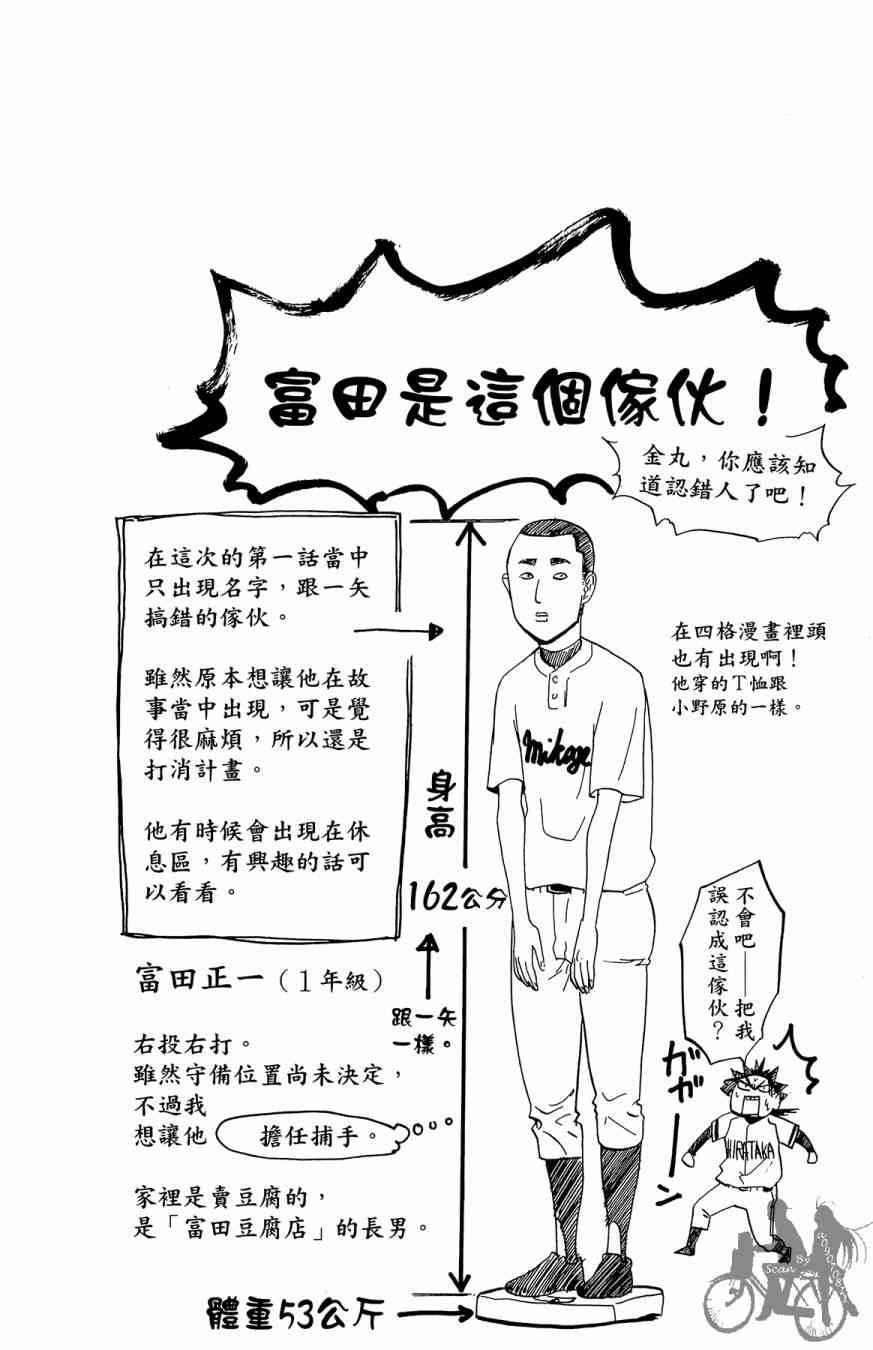 富田是這個傢伙！
金丸，你應該知
道認錯人了吧！
在這次的第一話當中
只出現名字，跟一矢
搞錯的傢伙。
雖然原本想讓他在故
事當中出現，可是覺
得很麻煩，所以還是
打消計畫。
他有時候會出現在休
息區，有興趣的話可
以看看。
在四格漫畫裡頭
也有出現啊！
他穿的T恤跟
小野原的一樣。
Mikage
身高
162公分
跟一矢
一樣。
富田正一（1年級）
右投右打。
雖然守備位置尚未決定，
不過我
想讓他 擔任捕手。
家裡是賣豆腐的，
是「富田豆腐店」的長男。
體重53公斤
不會吧——把我
誤認成這傢伙？
ガガーン
HIRATAKA
Scan By